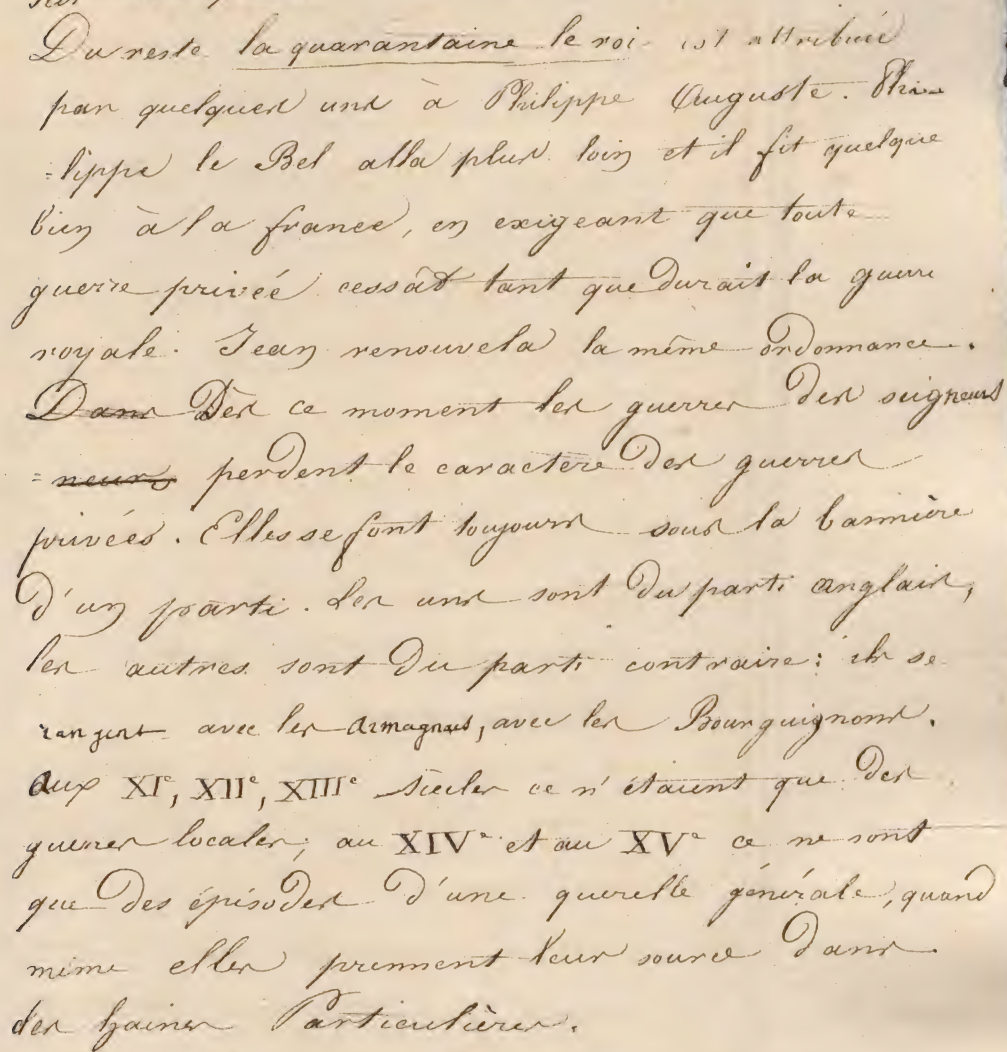 Du reste la quarantaine le roi est attribuée
par quelques uns à Philippe Auguste. Phi-
=lippe le Bel alla plus loin et il fit quelque
bien à la france, en exigeant que toute
guerre privée cessât tant que durait la guerre
royale. Jean renouvela la même ordonnance.
Dans Dès ce moment les guerres des seigneurs
=neurs perdent le caractère des guerres
privées. Elles se font toujours sous la bannière
d'un parti. Les uns sont du parti anglais,
les autres sont du parti contraire: ils se
rangent avec les Armagnacs, avec les Bourguignons.
aux XIe, XIIe, XIIIe siècles ce n'étaient que des
guerres locales; au XIVe et au XVe ce ne sont
que des épisodes d'une querelle générale, quand
même elles prennent leur source dans
des haines Particulières.